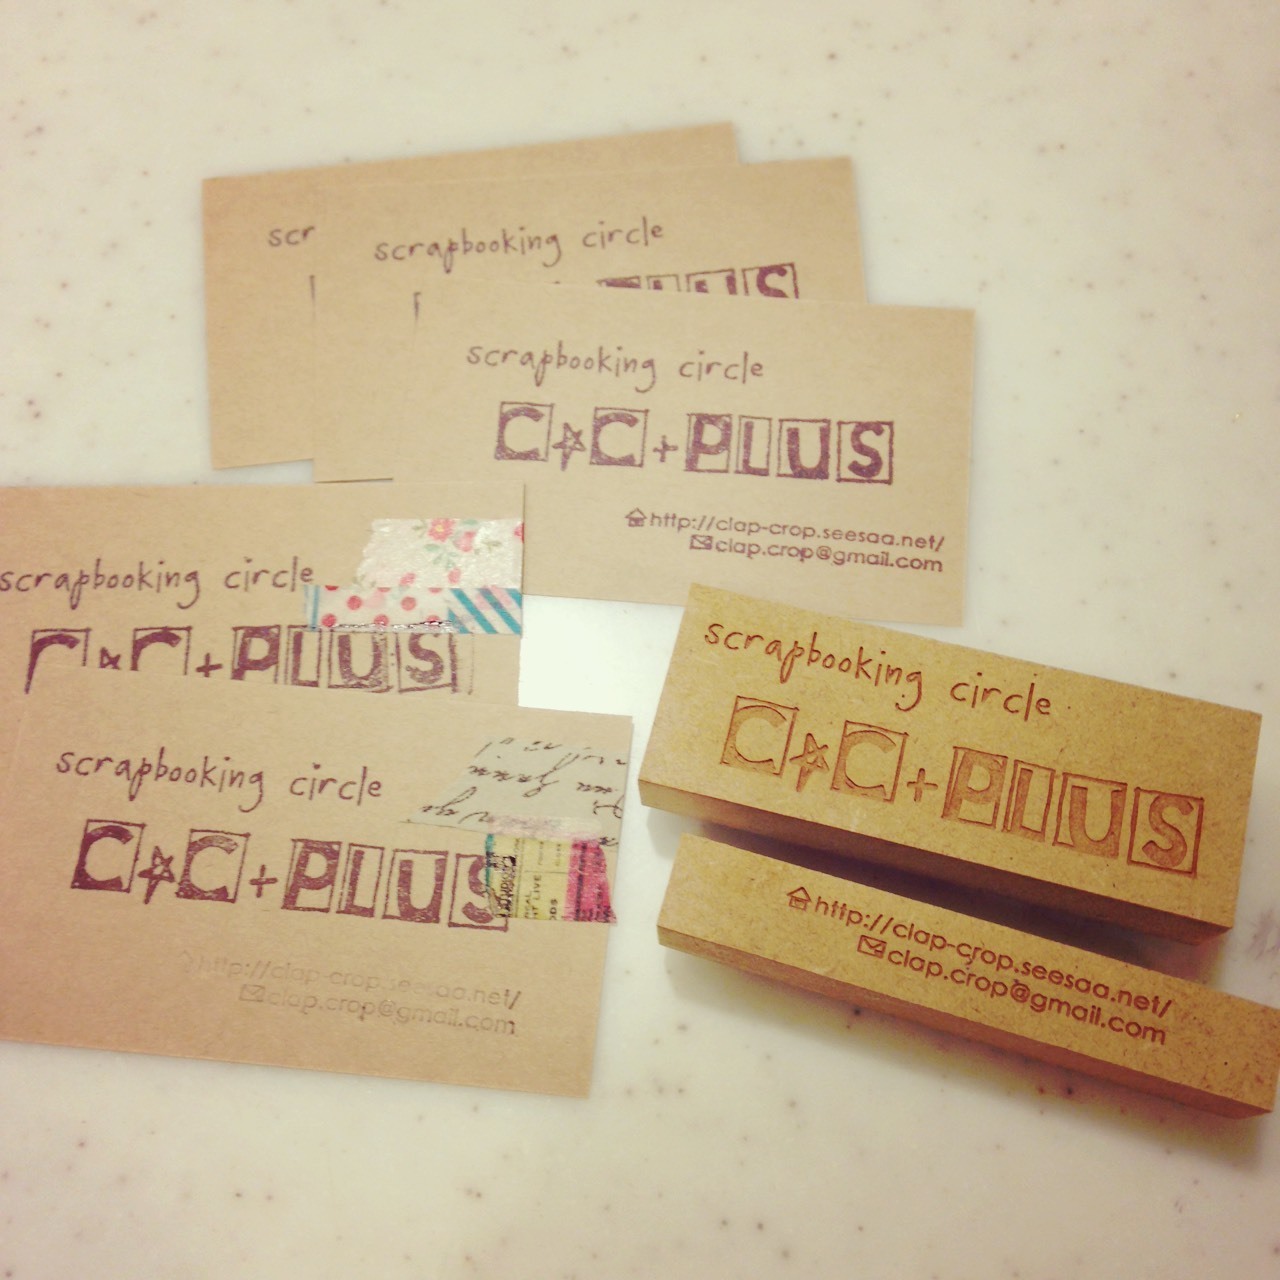 scr
scrapbooking circle
PLUS
scrapbooking circle
C☆C+PLUS
http://clap-crop.seesaa.net/
clap.crop@gmail.com
scrapbooking circle
C☆C+PLUS
scrapbooking circle
C☆C+PLUS
http://clap-crop.seesaa.net/
clap.crop@gmail.com
scrapbooking circle
C☆C+PLUS
http://clap-crop.seesaa.net/
clap.crop@gmail.com